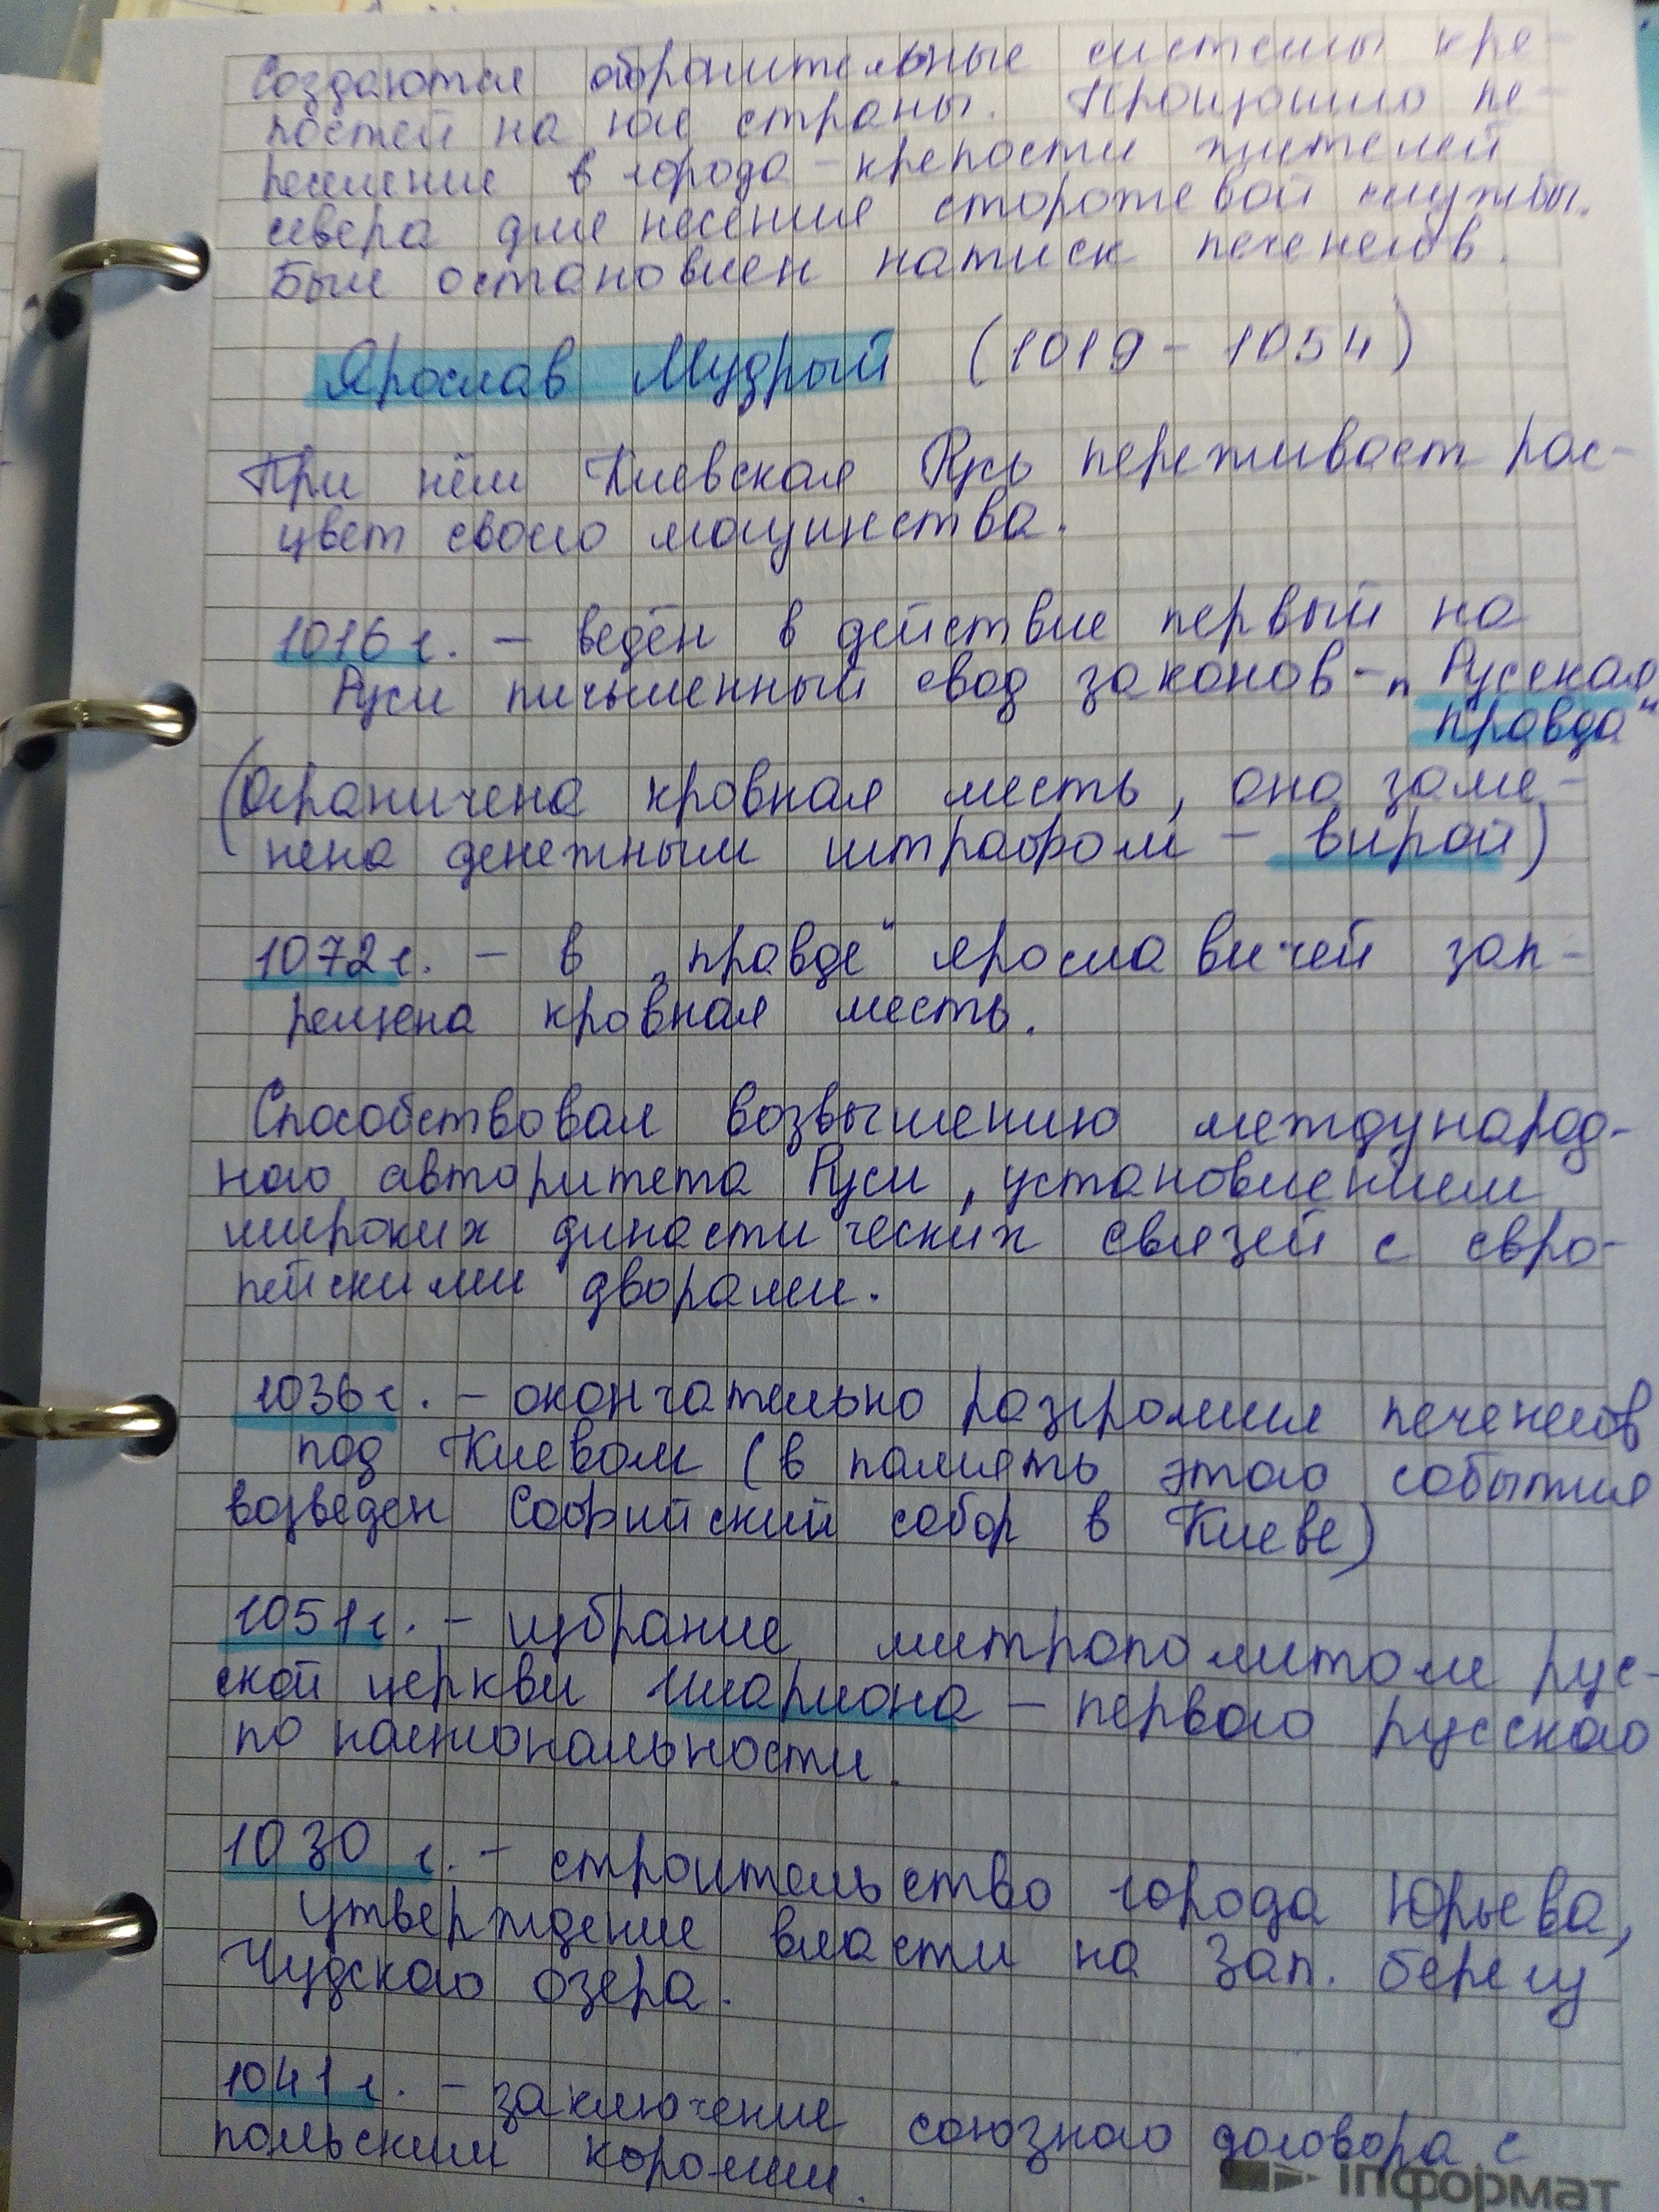 Создаются оборонительные системы кре-
постей на юге страны. Произошло пе-
реселение в города-крепости жителей
севера для несения сторожевой службы.
Был остановлен натиск печенегов.
Ярослав Мудрый (1019 - 1054)
При нём Киевская Русь переживает рас-
цвет своего могущинства.
1016 г. - ведён в действие первый на
Руси письменный свод законов - „Русская
правда“
(ограничена кровная месть, она заме-
нена денежным штрафом - вирой)
1072 г. - в „правде“ ярославичей зап-
рещена кровная месть.
Способствовал возвышению международ-
ного авторитета Руси, установлением
широких династических связей с евро-
пейскими дворами.
1036 г. - окончательно разгромил печенегов
под Киевом (в память этого события
возведен Софийский собор в Киеве)
1051 г. - избрание митрополитом рус-
ской церкви Илариона - первого русского
по национальности.
1030 г. - строительство города Юрьева,
утверждение власти на зап. берегу
Чудского озера.
1041 г. - заключение союзного договора с
польским королем.
інформат